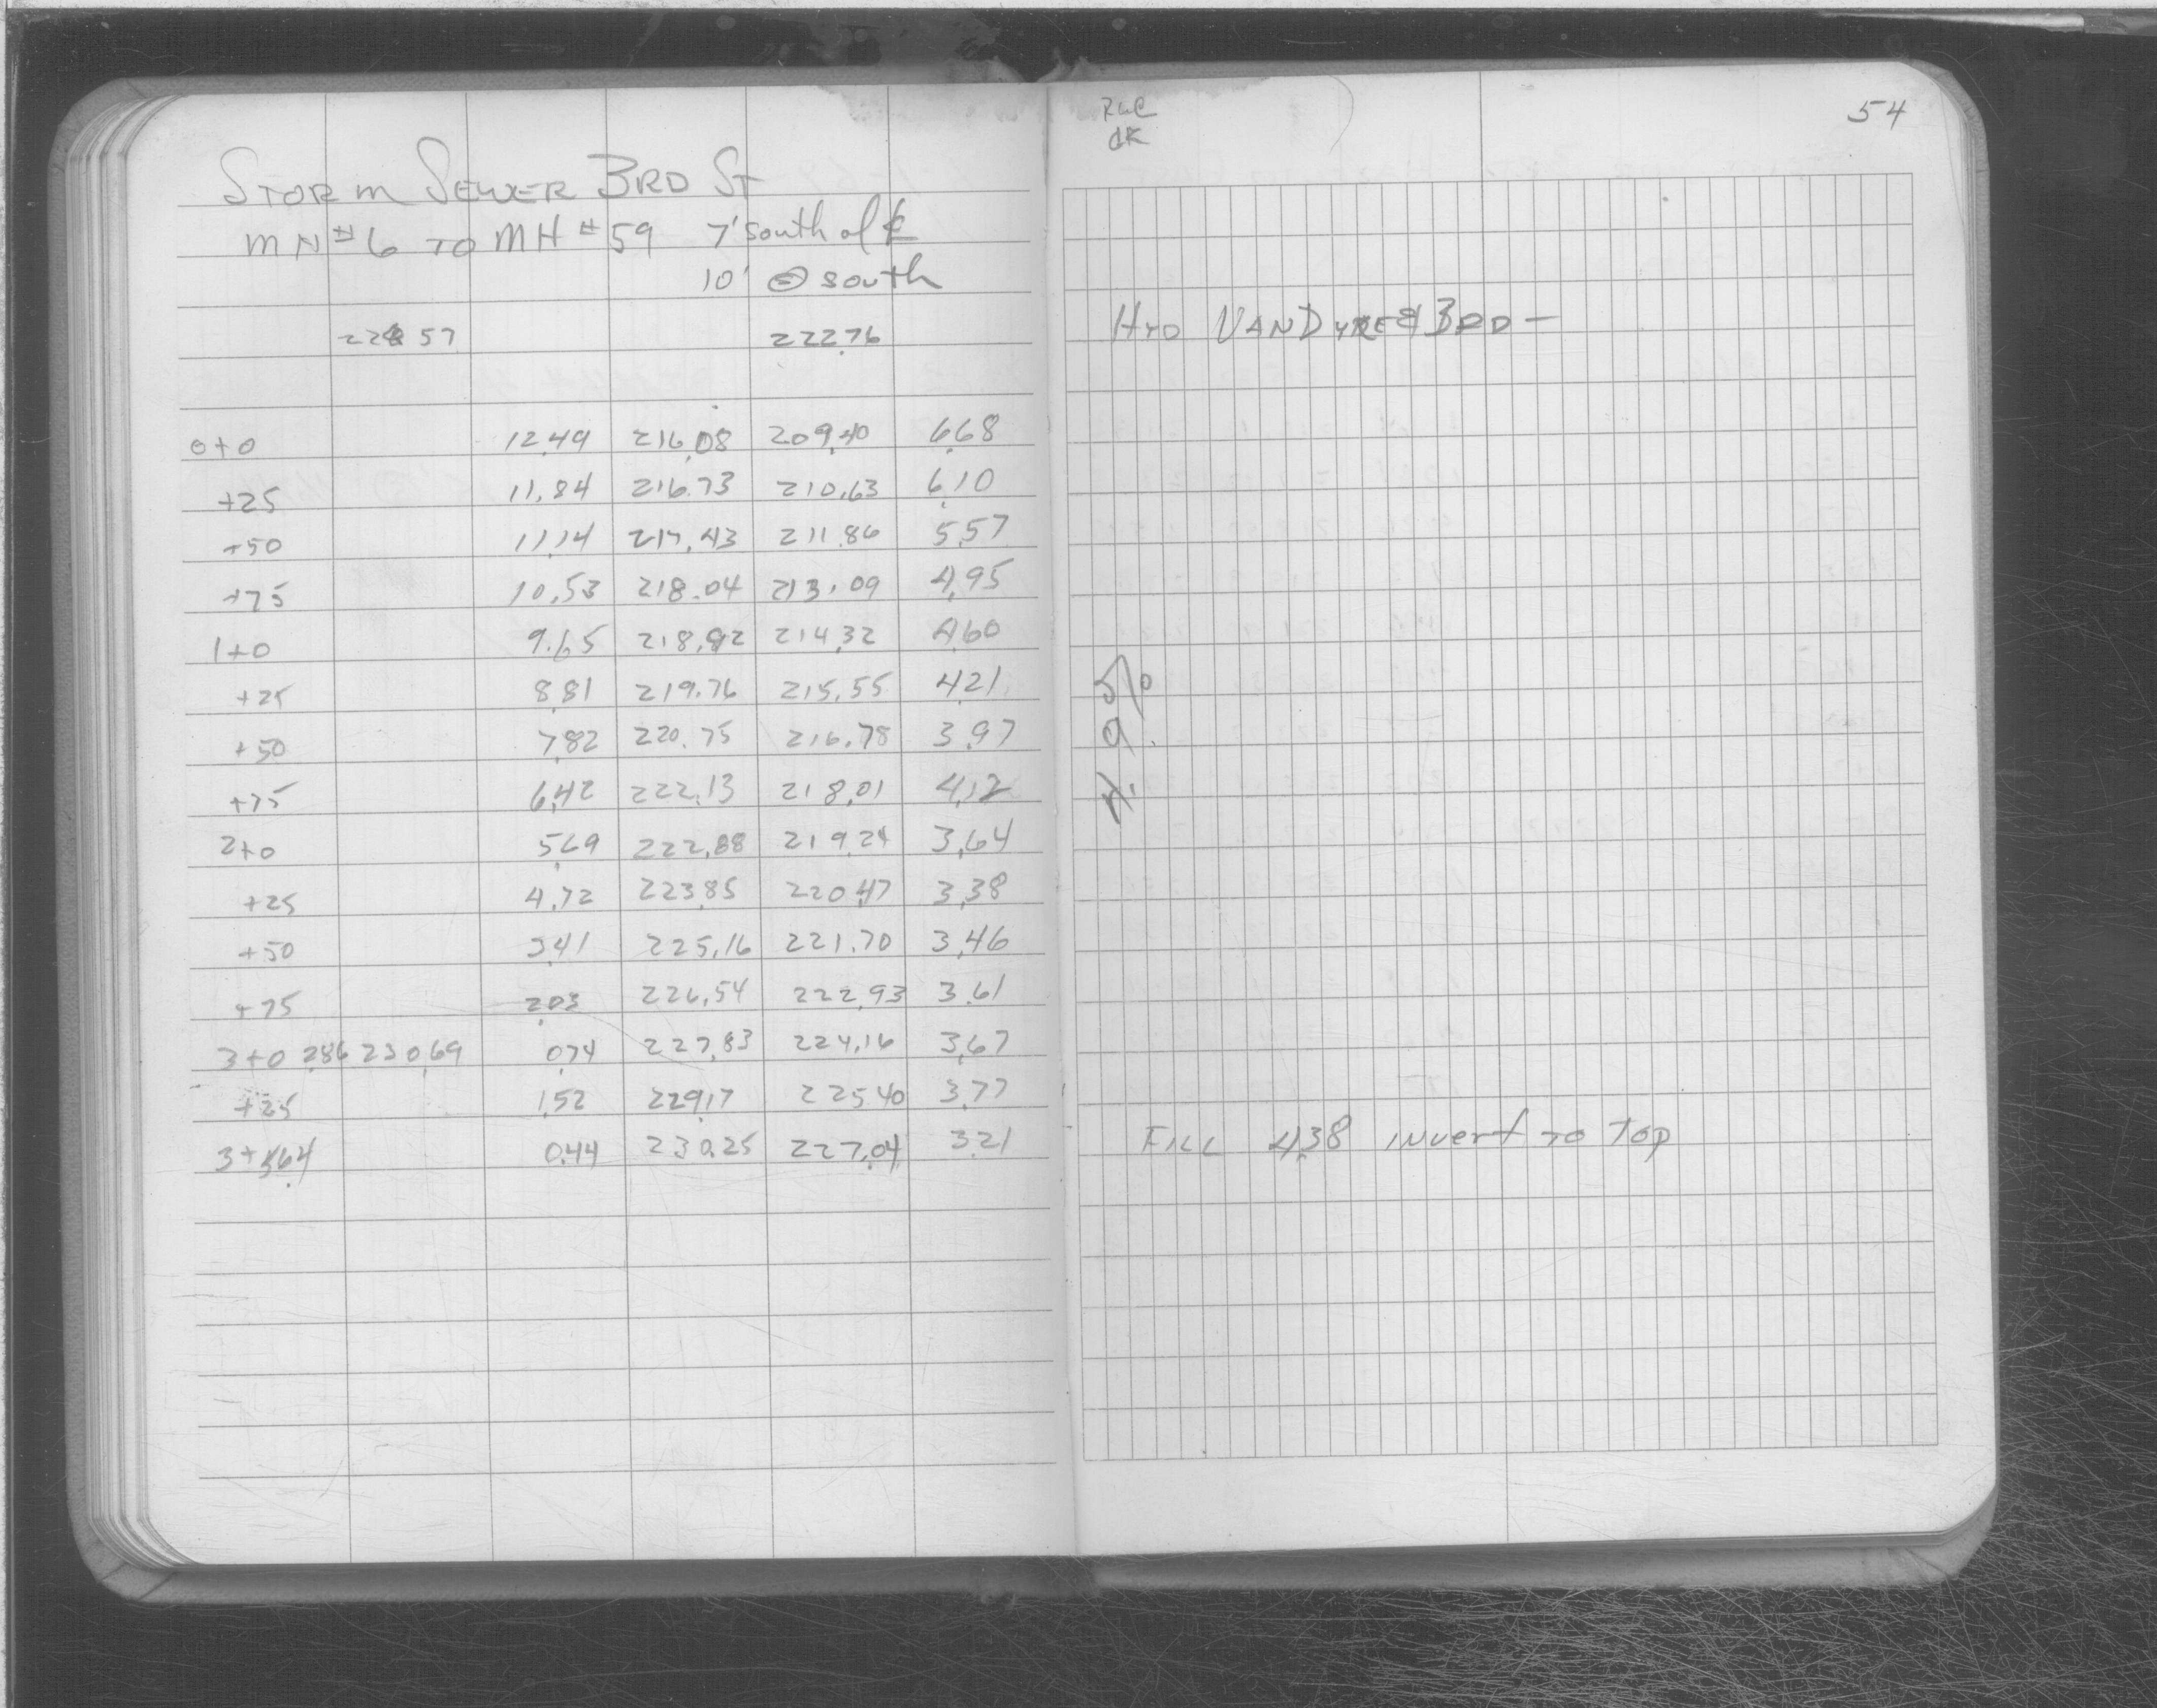 STORM SEWER 3RD ST
MH #6 TO MH #59 7' south of ℄
10' ⊖ south
228 57 222.76
0+0 12.49 216.08 209.40 6.68
+25 11.84 216.73 210.63 6.10
+50 11.14 217.43 211.86 5.57
+75 10.53 218.04 213.09 4.95
1+0 9.65 218.92 214.32 4.60
+25 8.81 219.76 215.55 4.21
+50 7.82 220.75 216.78 3.97
+75 6.42 222.13 218.01 4.12
2+0 5.69 222.88 219.24 3.64
+25 4.72 223.85 220.47 3.38
+50 3.41 225.16 221.70 3.46
+75 2.03 226.54 222.93 3.61
3+0 2.86 230.69 0.74 227.83 224.16 3.67
+25 1.52 229.17 225.40 3.77
3+ 0.44 230.25 227.04 3.21
54
HYD VANDYKE & 3RD —
4.9%
FILL 4.38 INVERT TO TOP